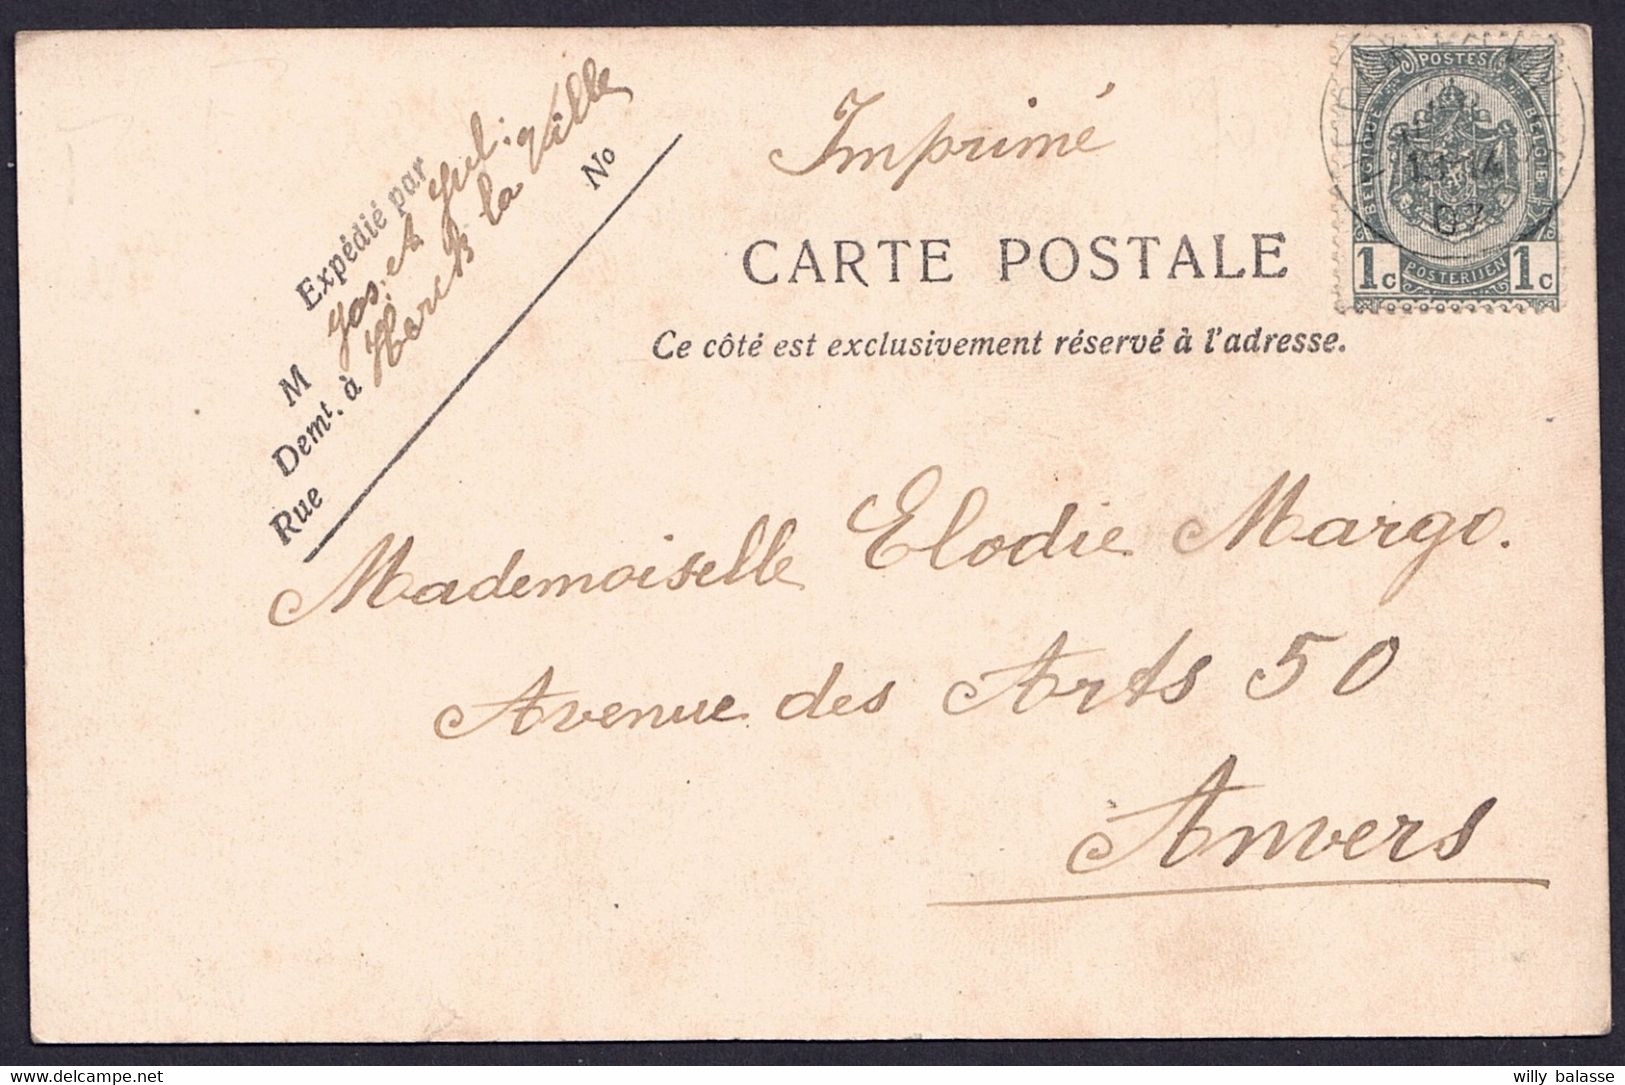 Expédié par
M Jos. et Jul.
Demt. à Herck la Ville
Rue No
Imprimé
CARTE POSTALE
Ce côté est exclusivement réservé à l'adresse.
POSTES
BELGIQUE BELGIË
1c POSTERIJEN 1c
13-14
07
Mademoiselle Elodie Margo.
Avenue des Arts 50
Anvers
willy balasse